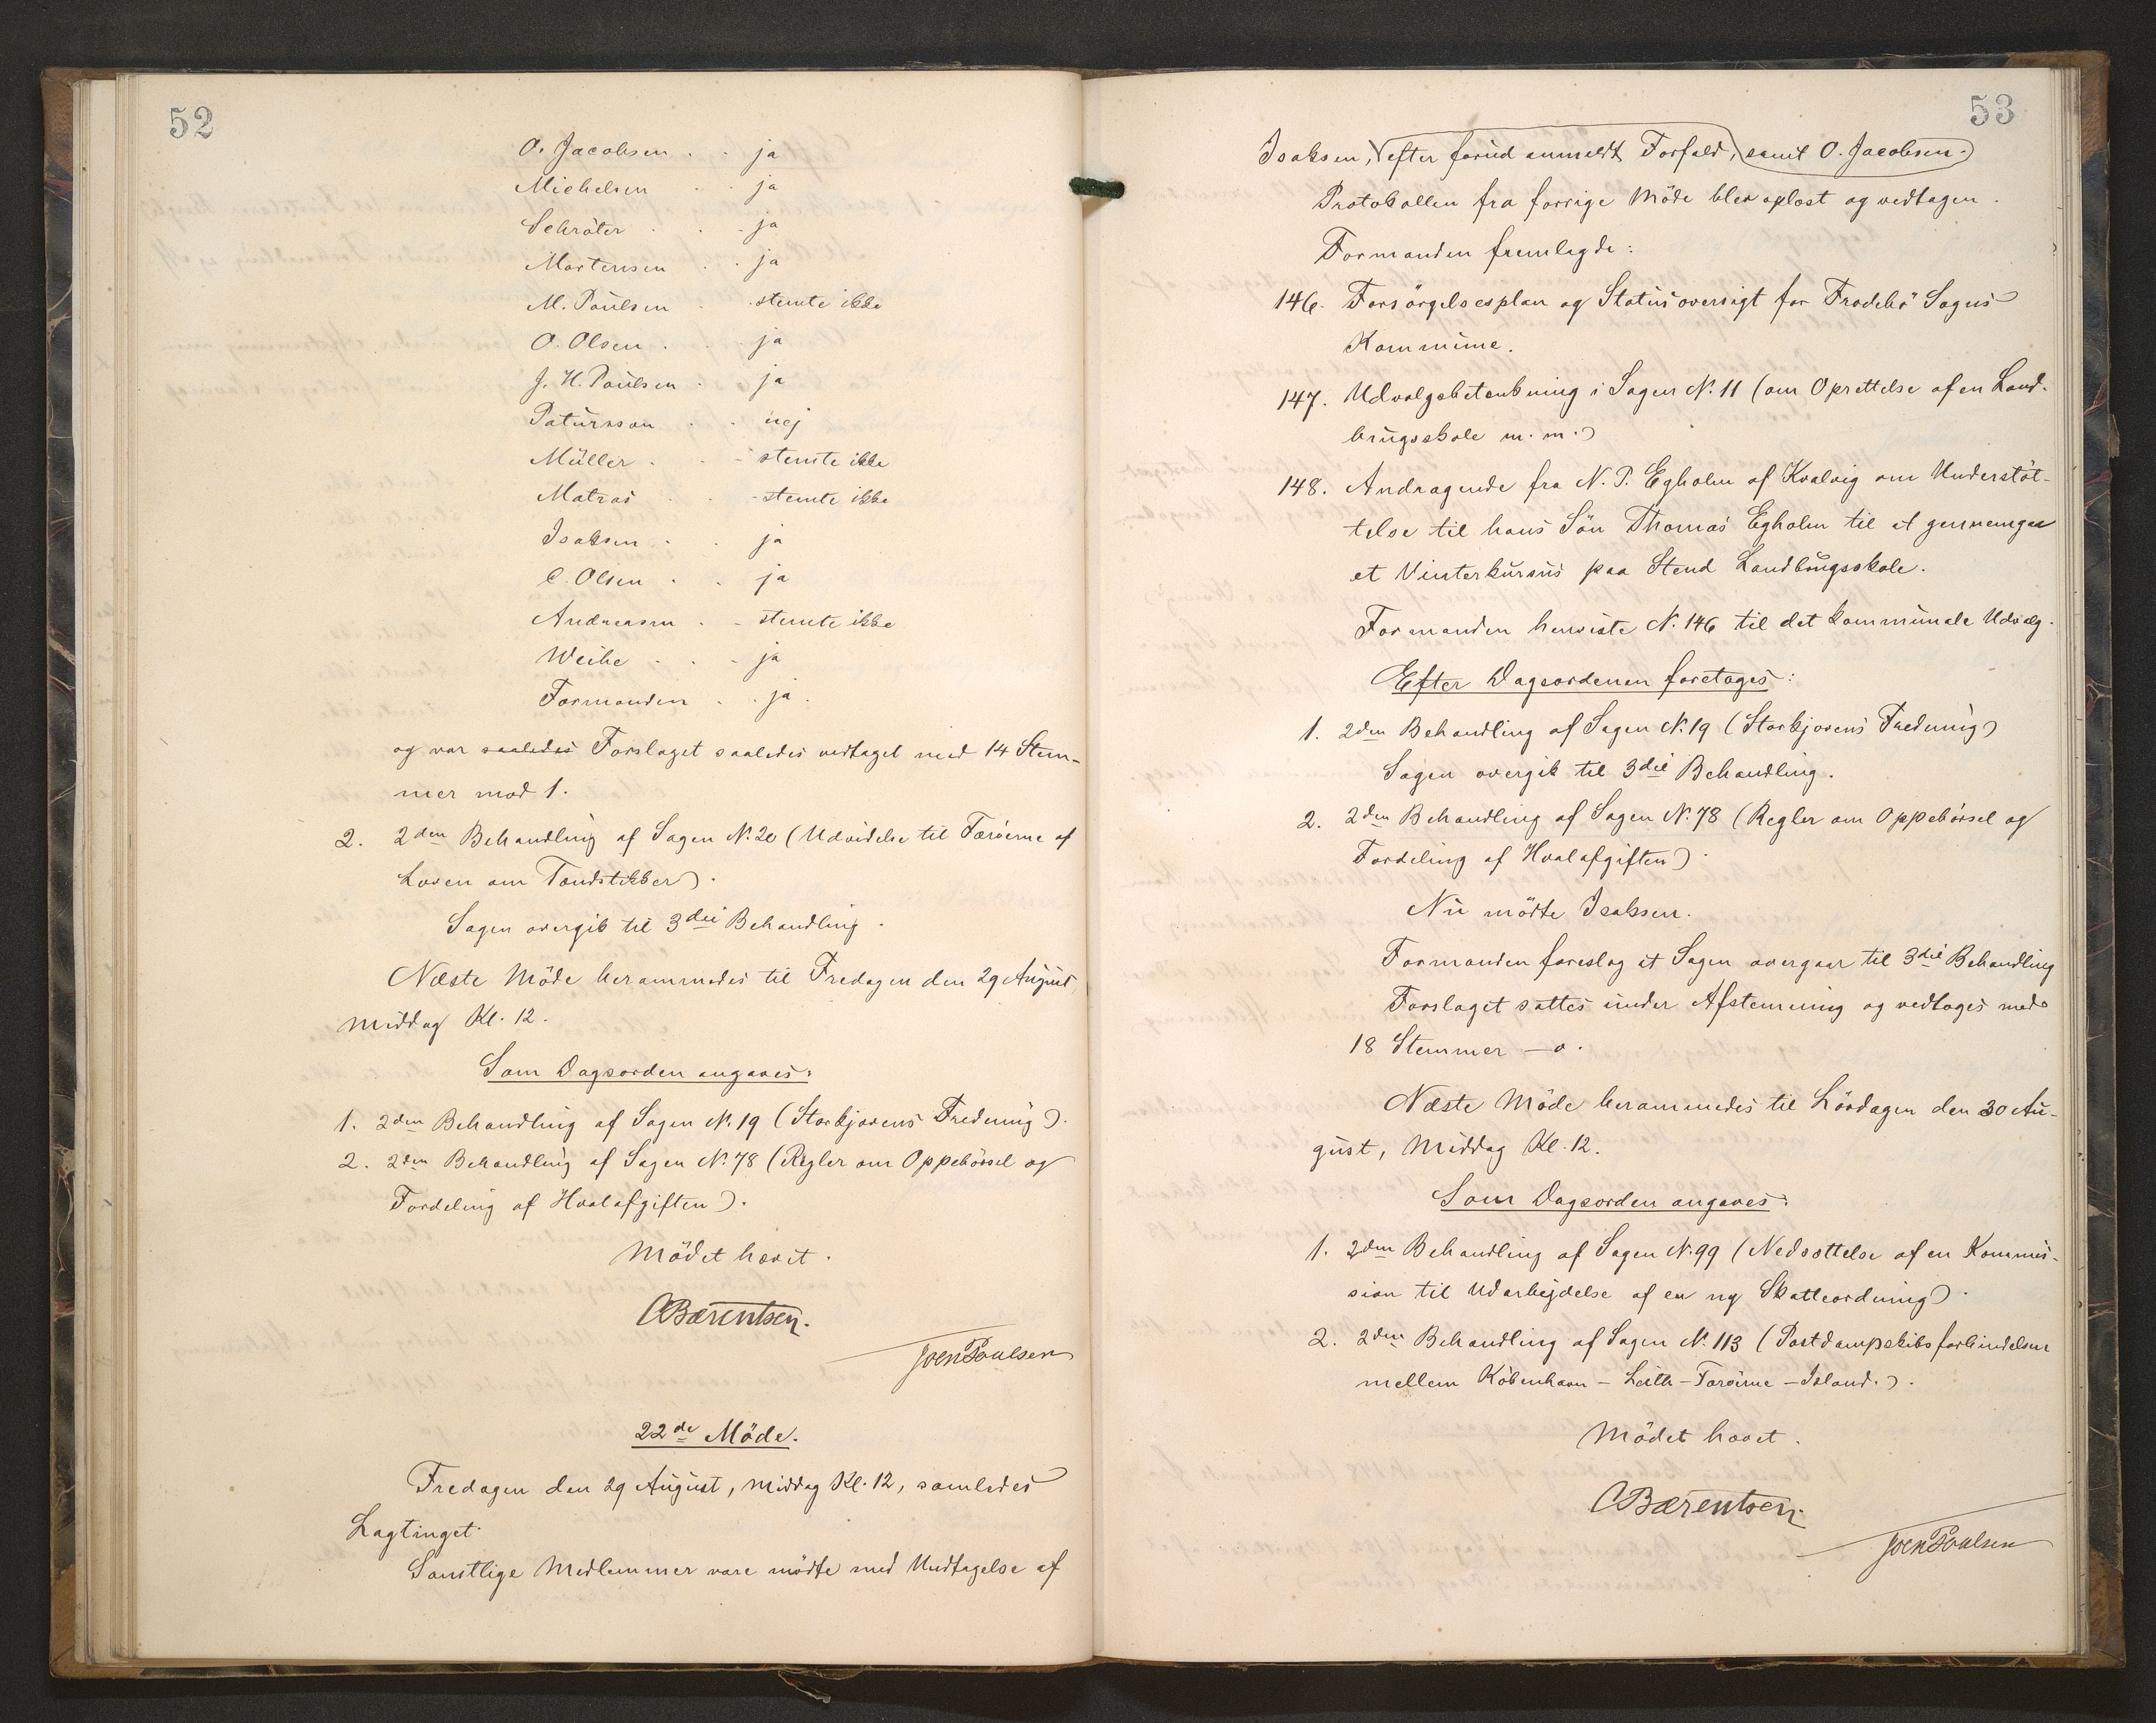 52
O. Jacobsen . . ja
Michelsen . . ja
Schröter . . - ja
Mortensen . . ja
M. Poulsen . . stemte ikke
O. Olsen . . . ja
J. H. Poulsen . ja
Patursson . . nej
Müller . . - stemte ikke
Matras . . - stemte ikke
Isaksen . . ja
C. Olsen . . ja
Andreasen . - stemte ikke
Weihe . . - ja
Formanden . . ja.
og var saaledes Forslaget saaledes vedtaget med 14 Stem-
mer mod 1.
2. 2den Behandling af Sagen N. 20 (Udvidelse til Færöerne af
Loven om Tændstikker).
Sagen overgik til 3die Behandling.
Næste Möde berammedes til Fredagen den 29 August,
Middag Kl. 12.
Som Dagsorden angaves:
1. 2den Behandling af Sagen N. 19 (Storkjovens Fredning).
2. 2den Behandling af Sagen N. 78 (Regler om Oppebörsel og
Fordeling af Hvalafgiften).
Mödet hævet.
CBærentsen.
Joen Poulsen
22de Möde.
Fredagen den 29 August, Middag Kl. 12, samledes
Lagtinget.
Samtlige Medlemmer vare mödte med Undtagelse af
53
Isaksen, efter forud anmeldt Forfald, samt O. Jacobsen.
Protokollen fra forrige Möde blev oplæst og vedtagen.
Formanden fremlagde:
146. Forsörgelsesplan og Statusoversigt for Frodebö Sogns
Kommune.
147. Udvalgsbetænkning i Sagen N. 11 (om Oprettelse af en Land-
brugsskole m. m.)
148. Andragende fra N. P. Egholm af Kvalvig om Understöt-
telse til hans Sön Thomas Egholm til at gennemgaa
et Vinterkursus paa Stend Landbrugsskole.
Formanden henviste N. 146 til det kommunale Udvalg.
Efter Dagsordenen foretoges:
1. 2den Behandling af Sagen N. 19 (Storkjovens Fredning)
Sagen overgik til 3die Behandling.
2. 2den Behandling af Sagen N. 78 (Regler om Oppebörsel og
Fordeling af Hvalafgiften).
Nu mödte Isaksen.
Formanden foreslog at Sagen overgaar til 3die Behandling
Forslaget sattes under Afstemning og vedtoges med
18 Stemmer — 0.
Næste Möde berammedes til Lördagen den 30 Au-
gust, Middag Kl. 12.
Som Dagsorden angaves:
1. 2den Behandling af Sagen N. 99 (Nedsættelse af en Kommis-
sion til Udarbejdelse af en ny Skatteordning).
2. 2den Behandling af Sagen N. 113 (Postdampskibsforbindelsen
mellem Köbenhavn - Leith - Færöerne - Island.).
Mödet hævet.
CBærentsen.
Joen Poulsen